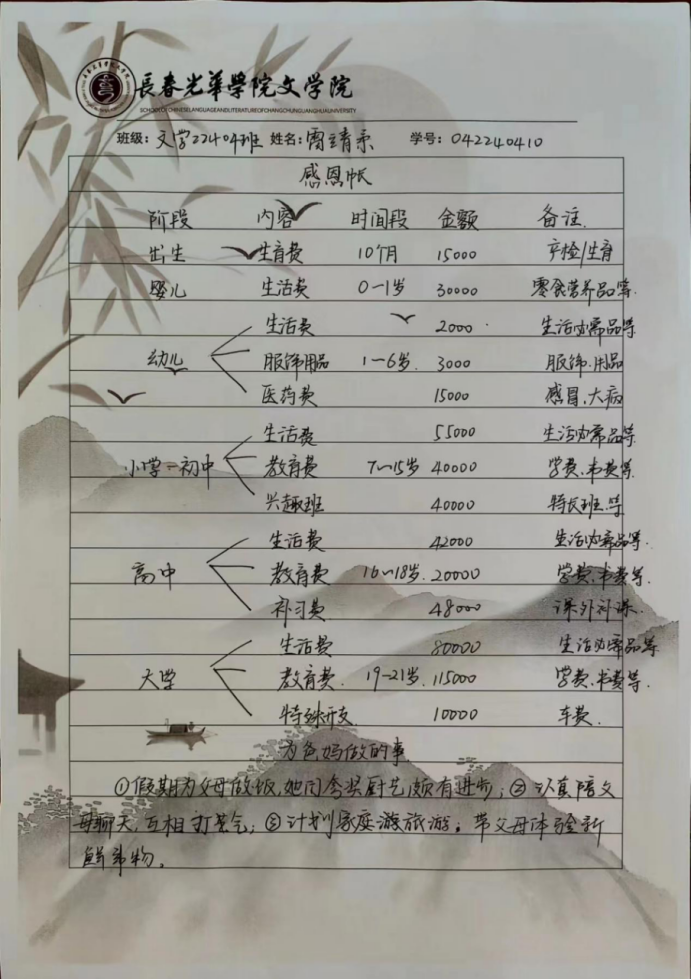 長春光華學院文学院
SCHOOL OF CHINESE LANGUAGE AND LITERATURE OF CHANGCHUN GUANGHUA UNIVERSITY
班级：文学22404班 姓名：雷靖柔 学号：042240410
感恩帐
阶段 内容 时间段 金额 备注
出生 生育费 10个月 15000 产检/生育
婴儿 生活费 0—1岁 30000 零食营养品等.
生活费 2000 生活必需品等
幼儿 服饰用品 1—6岁. 3000 服饰.用品
医药费 15000 感冒、大病
生活费 55000 生活必需品等.
小学—初中 教育费 7~15岁 40000 学费、书费等.
兴趣班 40000 特长班.等
生活费 42000 生活必需品等.
高中 教育费 16~18岁. 20000 学费、书费等.
补习费 48000 课外补课.
生活费 80000 生活必需品等
大学 教育费. 19—21岁. 115000 学费、书费等.
特殊开支 10000 车费.
为爸妈做的事
①假期为父母做饭，她们夸奖厨艺颇有进步；②认真陪父
母聊天，互相打气；③计划家庭游旅游。带父母体验新
鲜事物。